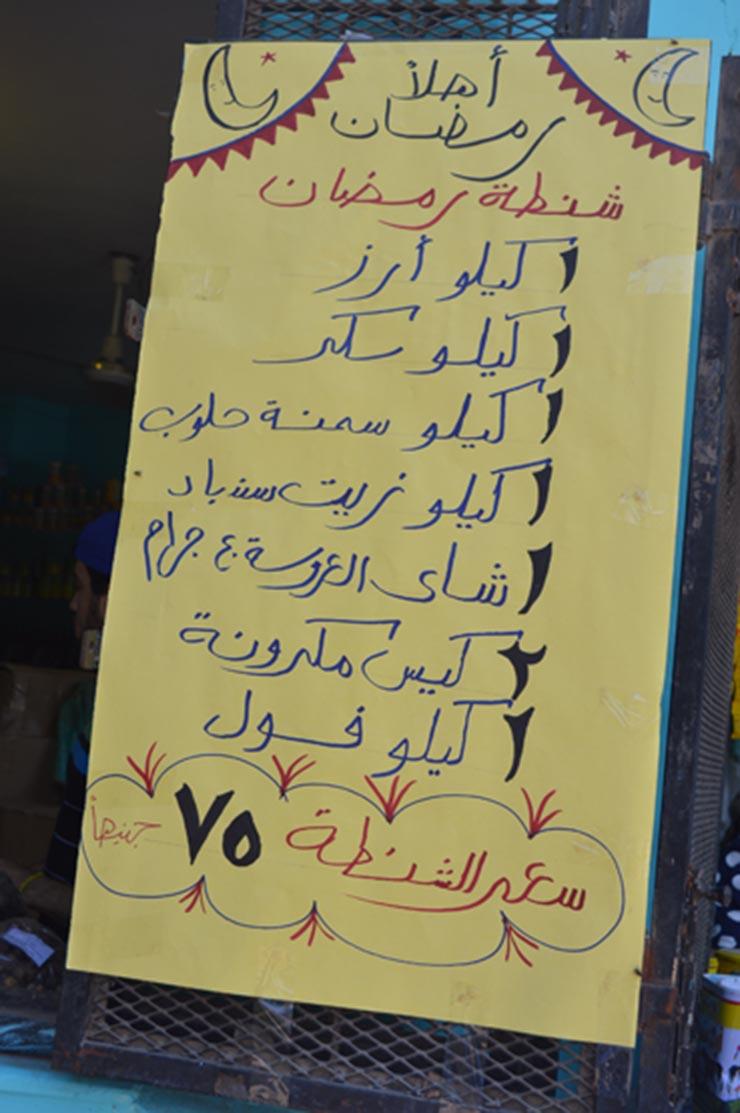 أهلاً
رمضان
شنطة رمضان
١ كيلو أرز
١ كيلو سكر
١ كيلو سمنة حلوب
١ كيلو زيت سندباد
١ شاى العروسة ٤٠ جرام
٢ كيس مكرونة
١ كيلو فول
سعر الشنطة ٧٥ جنيهاً